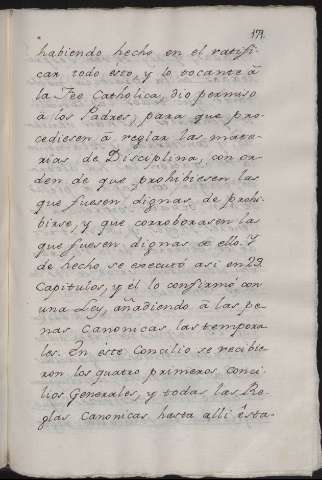 171.
habiendo hecho en el ratifi
car todo esto, y lo tocante â
la Fee Catholica, dio permiso
â los Padres, para que pro-
cediesen â reglar las mate-
rias de Disciplina, con or-
den de que prohibiesen las
que fuesen dignas de prohi-
birse, y que corroborasen las
que fuesen dignas de ello. Y
de hecho se executó asi en 23.
Capitulos, y él lo confirmó con
una Ley, añadiendo â las pe-
nas Canonicas las tempora-
les. En este Concilio se recibie-
ron los quatro primeros Conci-
lios Generales, y todas las Re-
glas Canonicas hasta alli ésta-